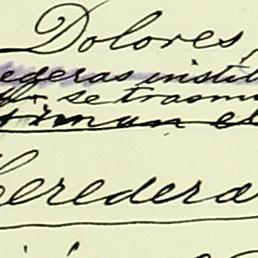 Dolores,
ederas instit
se trasm
timan el
Ceredera